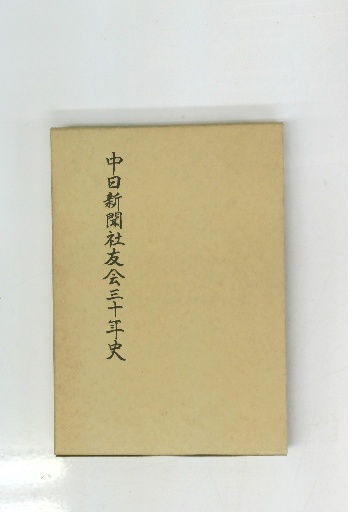 中日新聞社友会三十年史